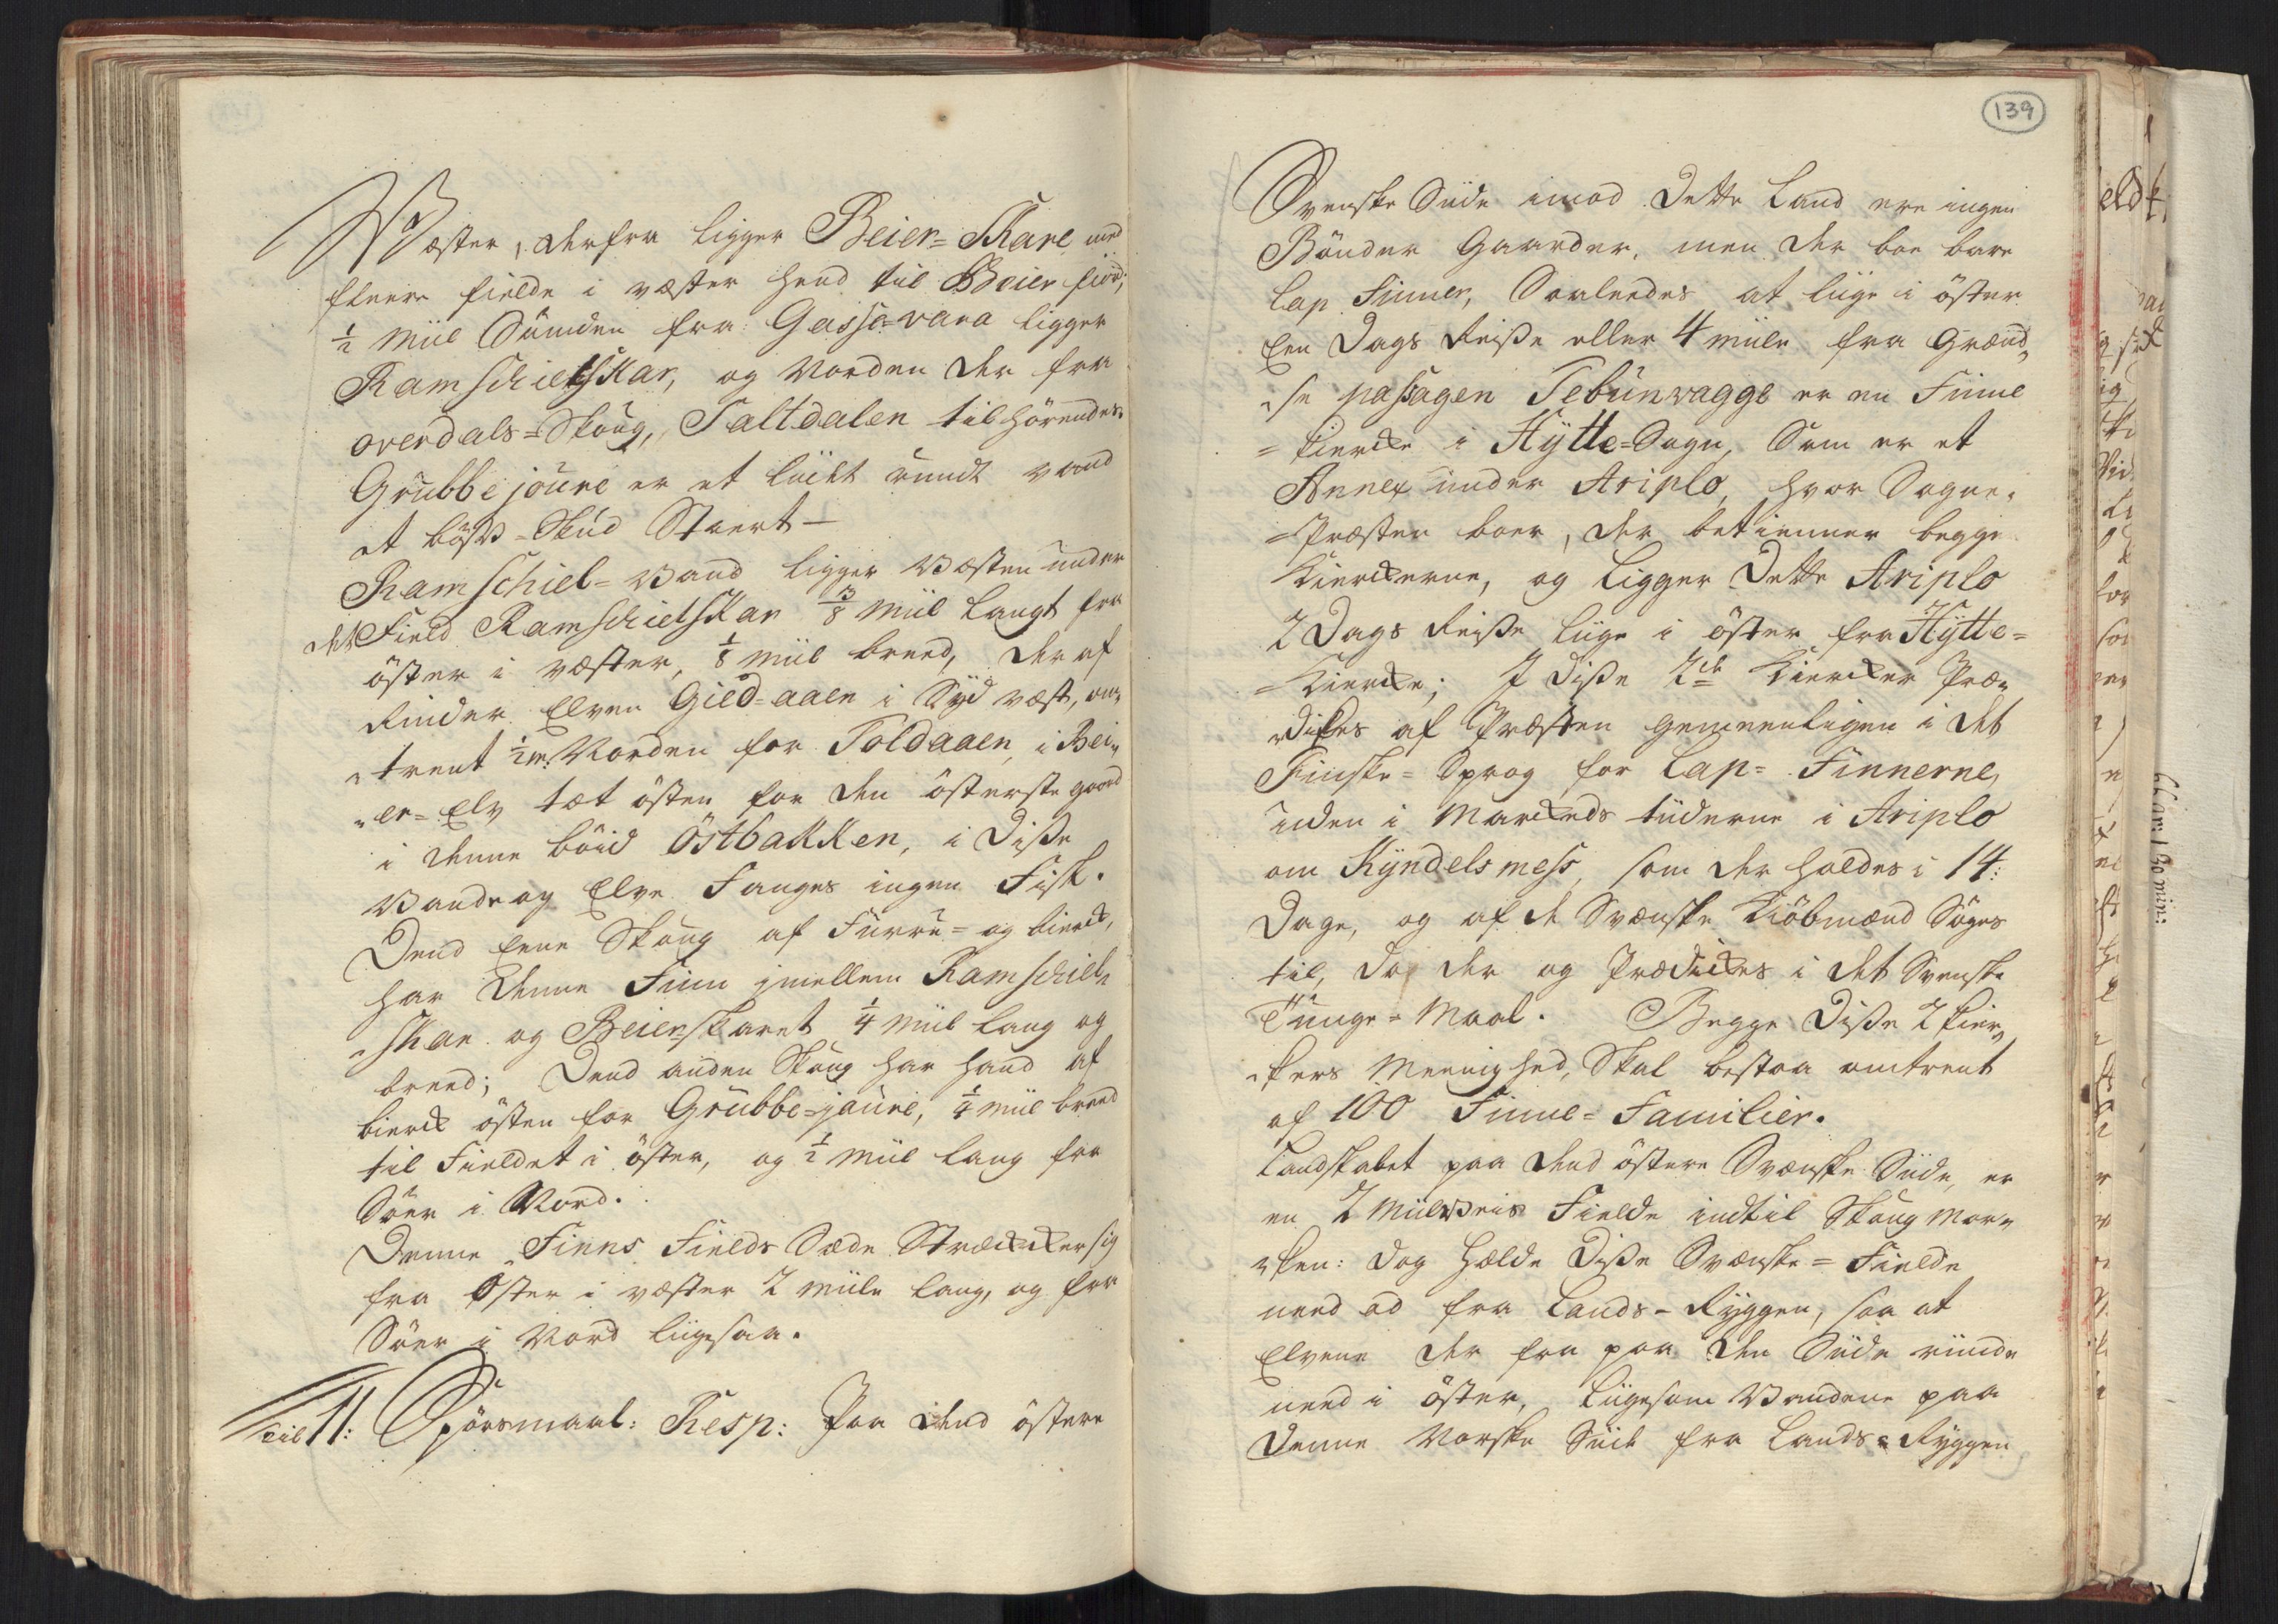 Wæster, derfra ligger Beier-Skare med
fleere fielde i væster hend til Beier fiord;
½ miil Sünden fra Gasse-vara ligger
RamschielsKar, og Norden der fra
overdals-Skoug, Saltdalen tilhörende.
Grubbe joure er et lüdet rundt vand
et böss-Skud Stoert —
Ramschiel-Vand ligger Væsten under
det Field RamschielsKar 3/8 miil langt fra
öster i væster, 1/8 miil breed, der af
Rinder Elven Gied-aaen i Syd væst, om„
„trent ½ m: Norden for Toldaaen, i Bei„
„er-Elv tæt östen for den österste gaard
i denne böid ÖstbakKen, i disse
Vande og Elve Fanges ingen Fisk.
Dend Eene Skoug af Furru- og birck,
har denne Finn jmellem Ramschiel„
„sKar og Beierskaret ¼ miil lang og
breed; Dend anden Skoug har hand af
birck östen for Grubbe-jaure, ¼ miil breed
til Fieldet i öster, og ½ miil lang fra
Söer i Nord.
Denne Finns Fields Sæde Strækcker sig
fra Öster i væster 2 miile lang, og fra
Söer i Nord liigesaa.
Til 11: Spörsmaal: Resp: Paa dend östere
139
Svenske Siide imod dette Land ere ingen
Bönder Gaarder, men der boe bare
Lap Finner, Saaleedes at liige i öster
Een Dags Reise eller 4 miile fra Grænd„
„se passagen Tebunvagge er en Finne
=kiercke i Hÿtte-Sogn, Som er et
Annex under Ariplo, hvor Sogne-
=Præsten boer, der betienner begge
Kierckerne, og Ligger dette Ariplo
2 Dags Reise liige i öster fra Hÿtte=
=Kiercke; I disse 2de Kiercker Præ„
„dikes af Præsten gemeenligen i det
Finske-Sprog for Lap-Finnerne,
uden i Marckeds tiiderne i Ariplo
om Kÿndelsmess, som der holdes i 14:
Dage, og af de Svænske Kiöbmænd Söges
til, da der og Prædickes i det Svenske
Tunge-Maal. Begge disse 2 Kier„
„kers Meenighed, Skal bestaa omtrent
af 100 Finne-Familier.
Landskabet paa dend östere Svænske Siide, er
en 2 Miilveis Fielde indtil Skoug mar„
„ken: dog hælde disse Svænske-Fielde
need ad fra Lands-Ryggen, saa at
Elvene der fra paa den Siide rinde
need i öster, Liigesom Vandene paa
denne Norske Siide fra Lands-Ryggen